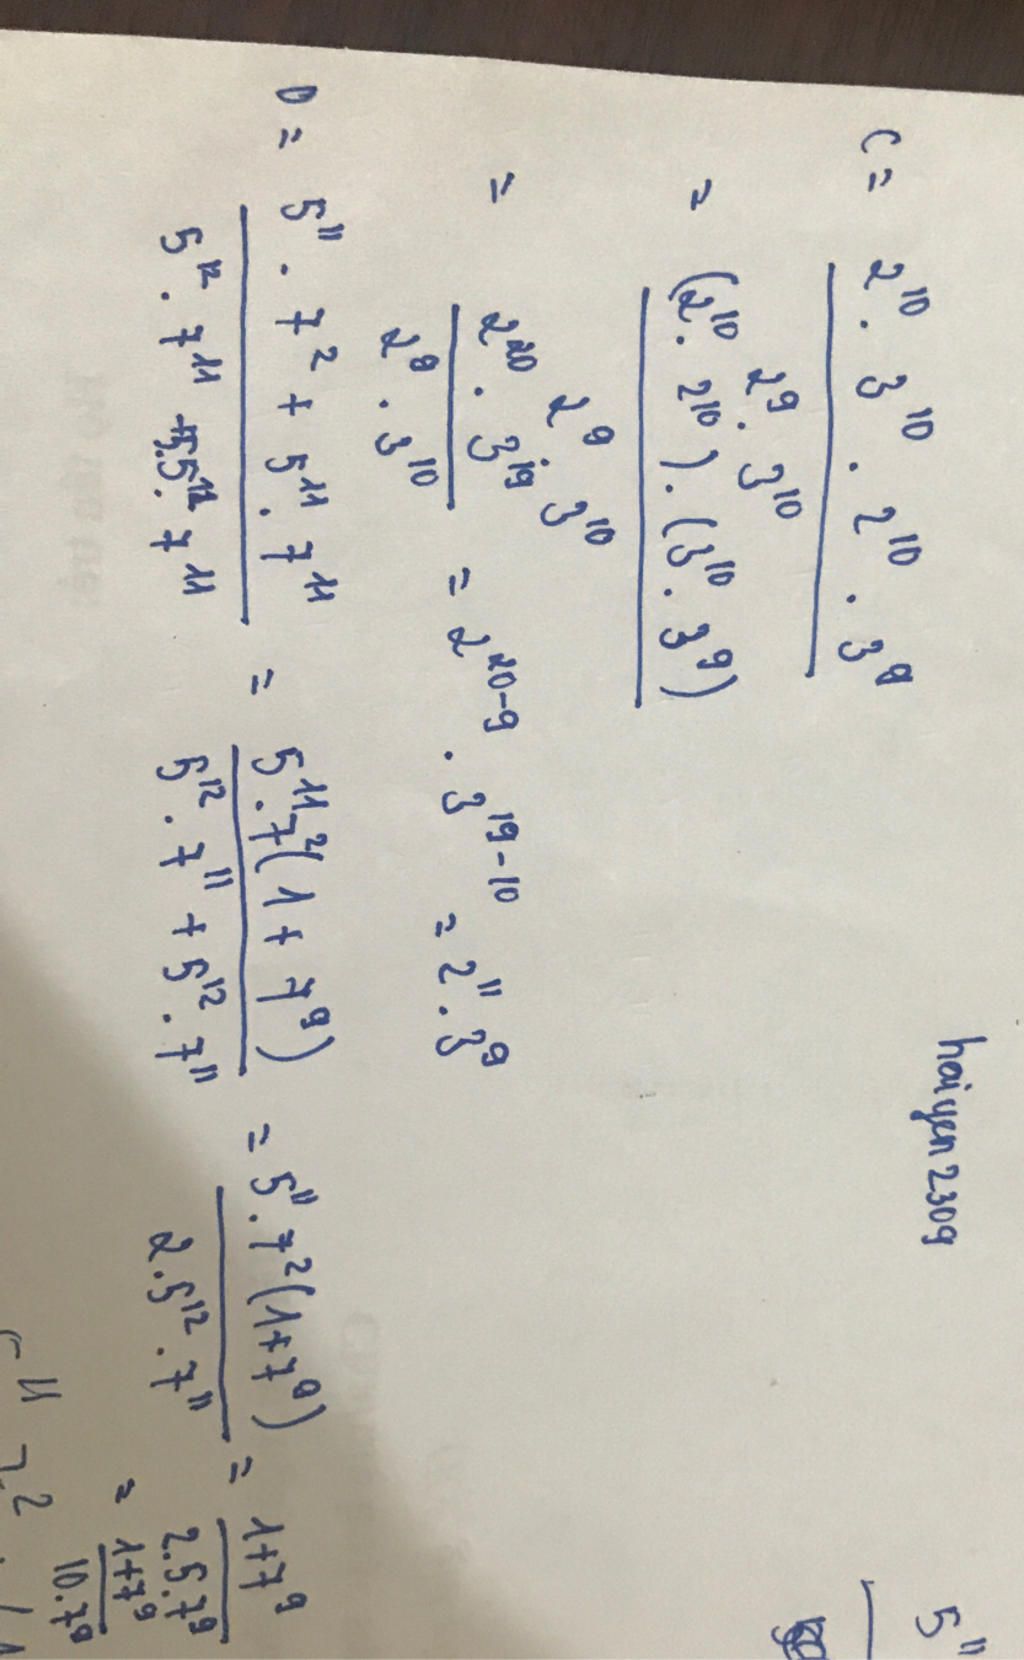 hải yen 2309
C = 2^10 . 3^10 . 2^10 . 3^9
2^9 . 3^10
= (2^10 . 2^10) . (3^10 . 3^9)
2^9 . 3^10
= 2^20 . 3^19
2^9 . 3^10
= 2^20-9 . 3^19-10 = 2^11 . 3^9
D = 5^11 . 7^2 + 5^11 . 7^11
5^12 . 7^11 + 5^12 . 7^11
= 5^11 . 7^2 (1 + 7^9)
5^12 . 7^11 + 5^12 . 7^11
= 5^11 . 7^2 (1 + 7^9)
2 . 5^12 . 7^11
= 1 + 7^9
2 . 5 . 7^9
= 1 + 7^9
10 . 7^9
5^11